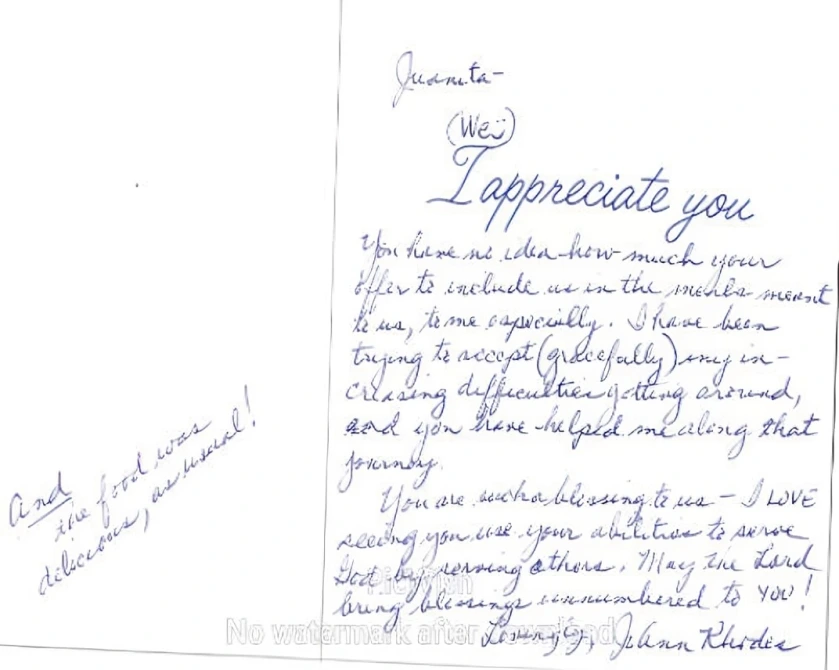 And
the food was
delicious, as usual!
Juanita-
(We)
I appreciate you
You have no idea how much your
offer to include us in the meals meant
to us, to me especially. I have been
trying to accept (gracefully) my in-
creasing difficulties getting around,
and you have helped me along that
journey.
You are such a blessing to us - I LOVE
seeing you use your abilities to serve
God by serving others. May the Lord
bring blessings unnumbered to YOU!
Lovingly, JoAnn Rhodes
No watermark after